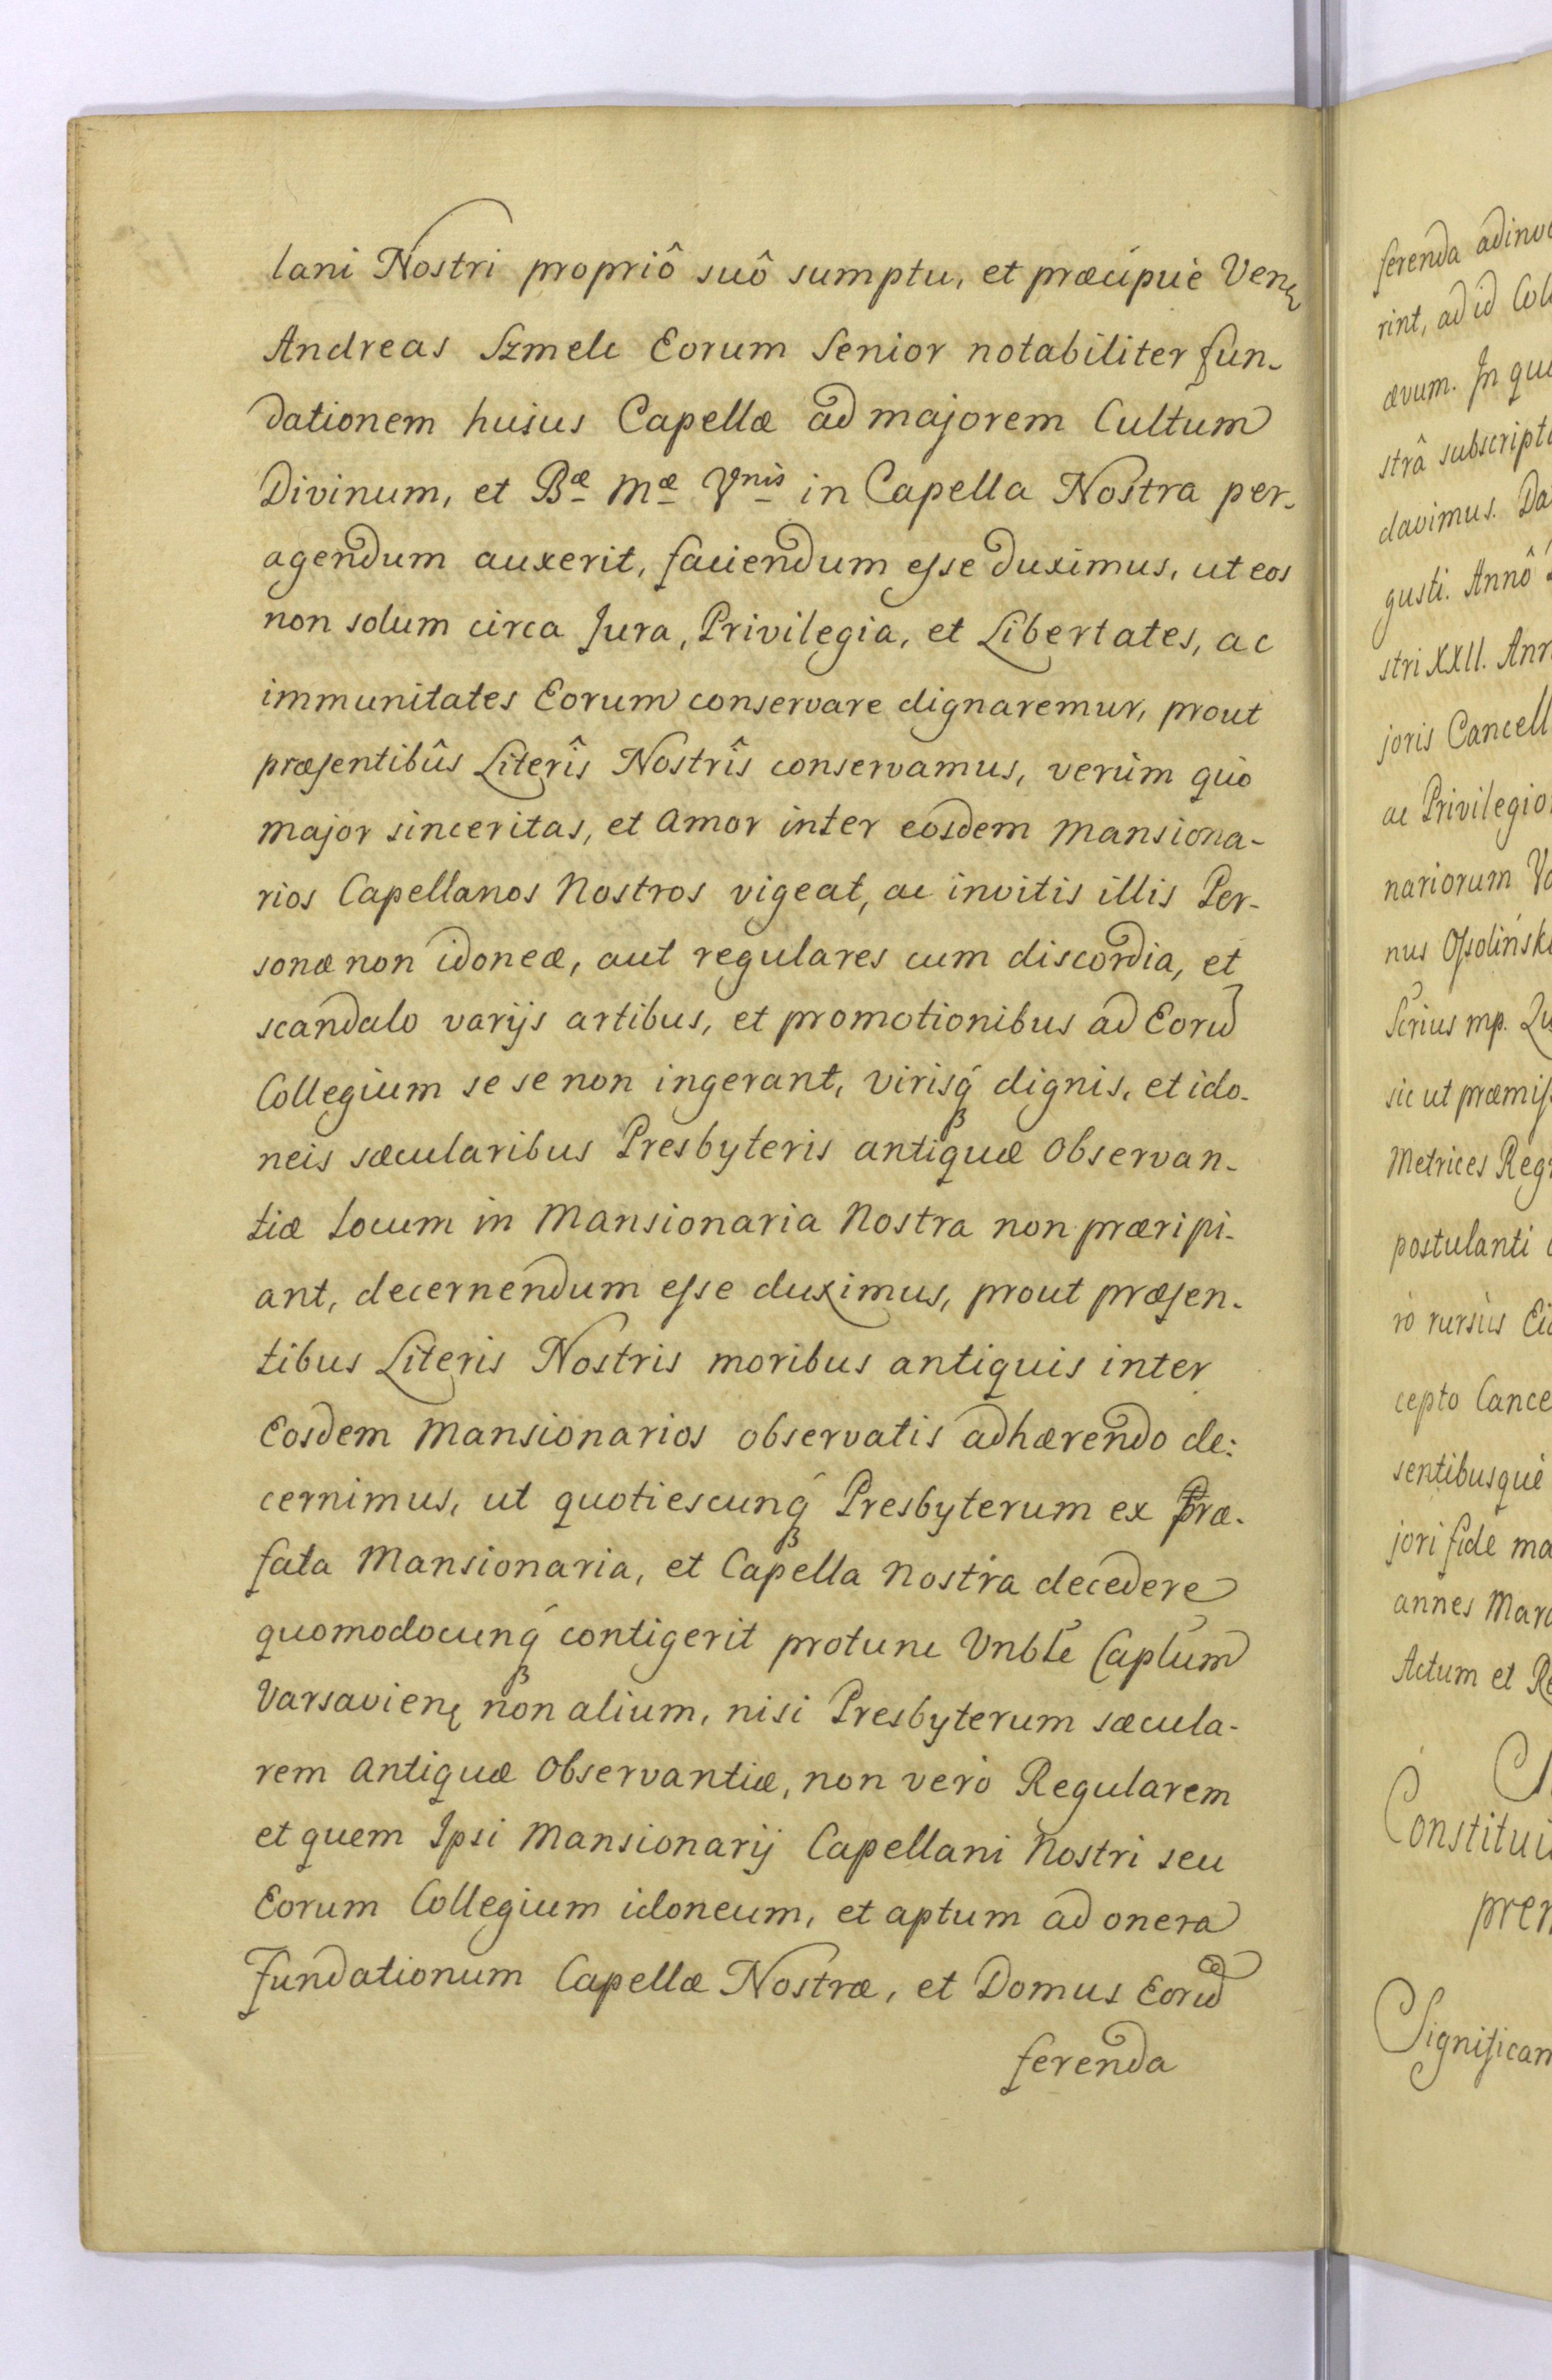 lani Nostri propriô suô sumptu, et præcipuè Venę
Andreas Szmelc Eorum Senior notabiliter fun-
dationem hujus Capellæ ad majorem Cultum
Divinum, et Bæ Mæ Vnis in Capella Nostra per-
agendum auxerit, faciendum esse duximus, ut eos
non solum circa Jura, Privilegia, et Libertates, ac
immunitates Eorum conservare dignaremur, prout
præsentibûs Literîs Nostrîs conservamus, verùm quò
major sinceritas, et Amor inter eosdem Mansiona-
rios Capellanos Nostros vigeat, ac invitis illis Per-
sonæ non idoneæ, aut regulares cum discordia, et
scandalo varijs artibus, et promotionibus ad Eorū
Collegium se se non ingerant, virisq́ dignis, et ido-
neis sæcularibus Presbyteris antiquæ Observan-
tiæ Locum in Mansionaria Nostra non præripi-
ant, decernendum esse duximus, prout præsen-
tibus Literis Nostris moribus antiquis inter
Eosdem Mansionarios observatis adhærendo de:
cernimus, ut quotiescunq́ Presbyterum ex Præ-
fata Mansionaria, et Capella Nostra decedere
quomodocunq́ contigerit protunc Vnble Caplum
Varsavienę non alium, nisi Presbyterum sæcula-
rem Antiquæ Observantiæ, non verò Regularem
et quem Ipsi Mansionarij Capellani Nostri seu
Eorum Collegium idoneum, et aptum ad onera
Fundationum Capellæ Nostræ, et Domus Eorū
ferenda
ferenda
rint, ad id
ævum. In
strâ
davimus.
gusti. Annô
stri XXII.
joris
ac
nariorum
nus
Scrius mp.
sic ut
Metrices
postulanti
rò rursùs
cepto
sentibusquè
jori fidè
annes
Actum et